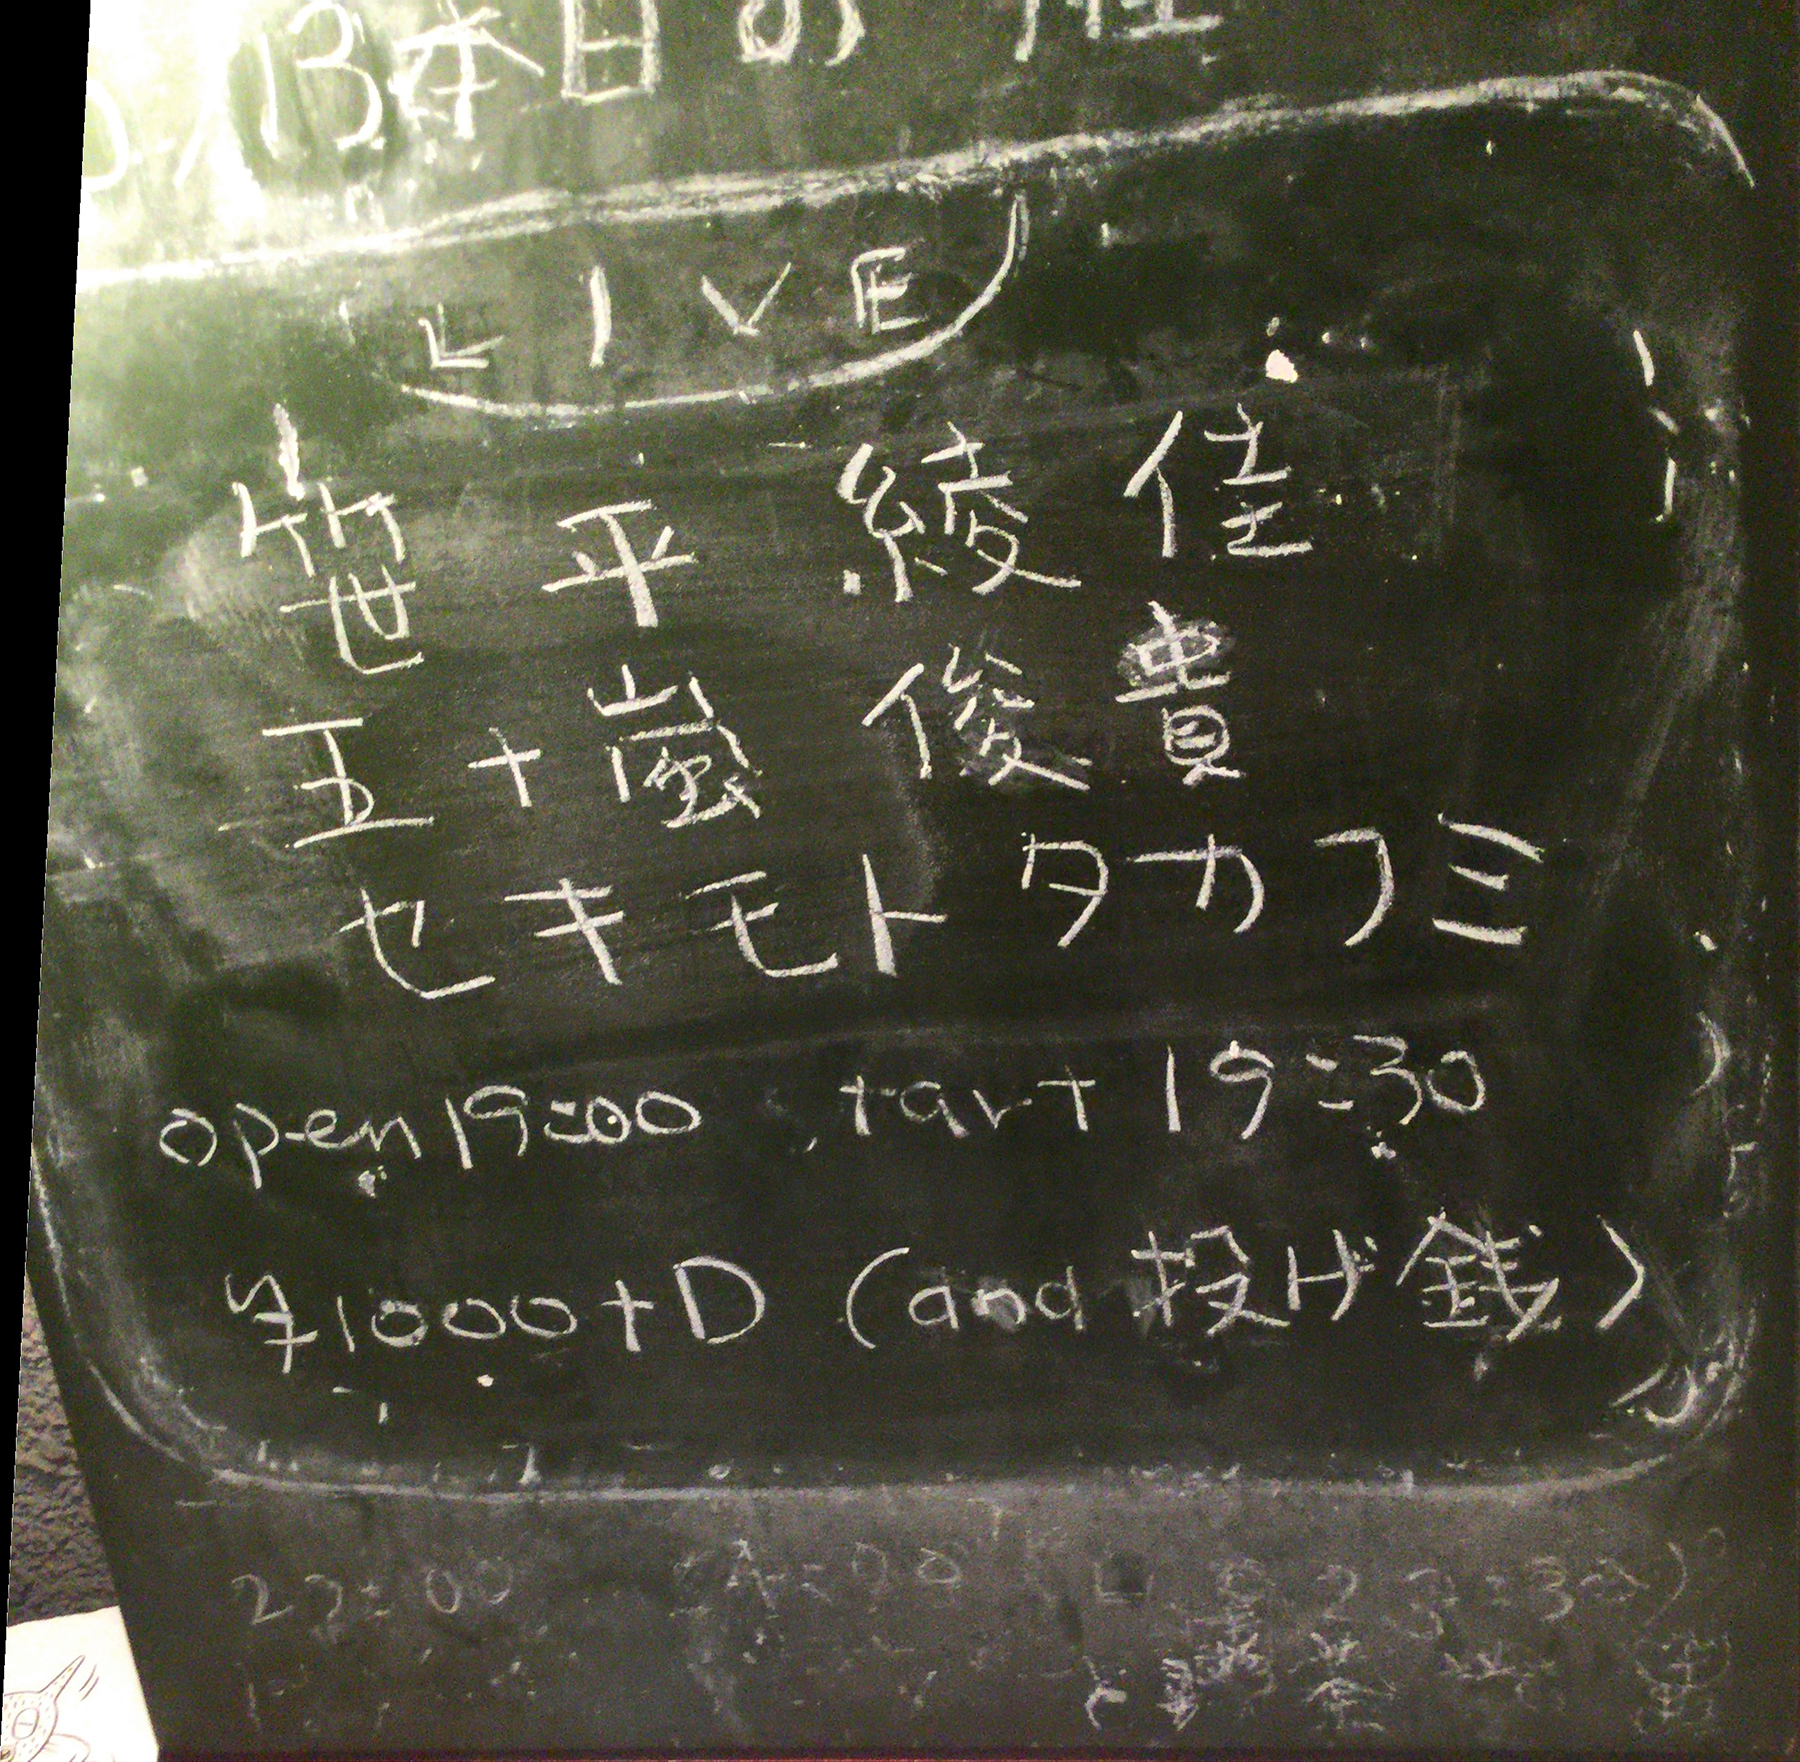 13本日の
LIVE
笹平綾佳
五十嵐俊貴
セキモトタカフミ
open19:00 start 19:30
¥1000+D (and 投げ銭)